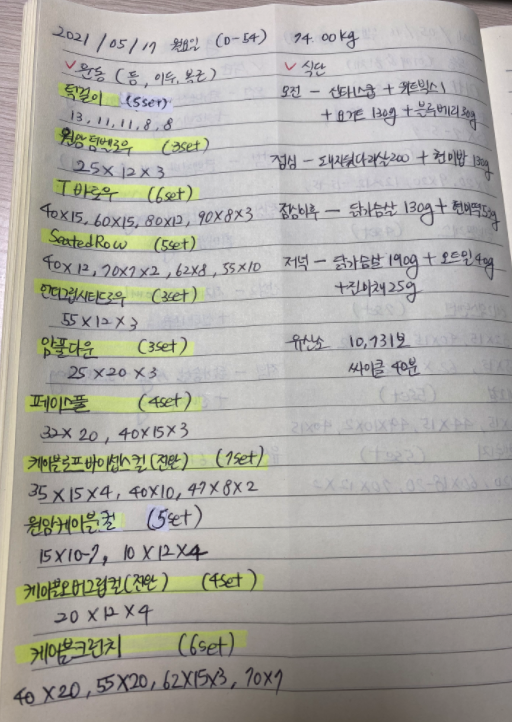 2021/05/17 월요일 (D-54) 74.00kg
✓운동 (등, 이두, 복근)
턱걸이 (5set)
13, 11, 11, 8, 8
원암덤벨로우 (3set)
25×12×3
T바로우 (6set)
40×15, 60×15, 80×12, 90×8×3
Seated Row (5set)
40×12, 70×7×2, 62×8, 55×10
언더그립시티드로우 (3set)
55×12×3
암풀다운 (3set)
25×20×3
페이스풀 (4set)
32×20, 40×15×3
케이블로프바이셉스컬(전완) (7set)
35×15×4, 40×10, 47×8×2
원암케이블컬 (5set)
15×10-7, 10×12×4
케이블오버그립컬(전완) (4set)
20×12×4
케이블크런치 (6set)
40×20, 55×20, 62×15×3, 70×7
✓식단
오전 - 산타스쿱 + 위트빅스1
+ 요거트 130g + 블루베리 30g
점심 - 돼지뒷다리살200 + 현미밥 130g
점심이후 - 닭가슴살 130g + 현미떡 53g
저녁 - 닭가슴살 190g + 오트밀 40g
+ 진미채 25g
유산소 10,731보
싸이클 40분